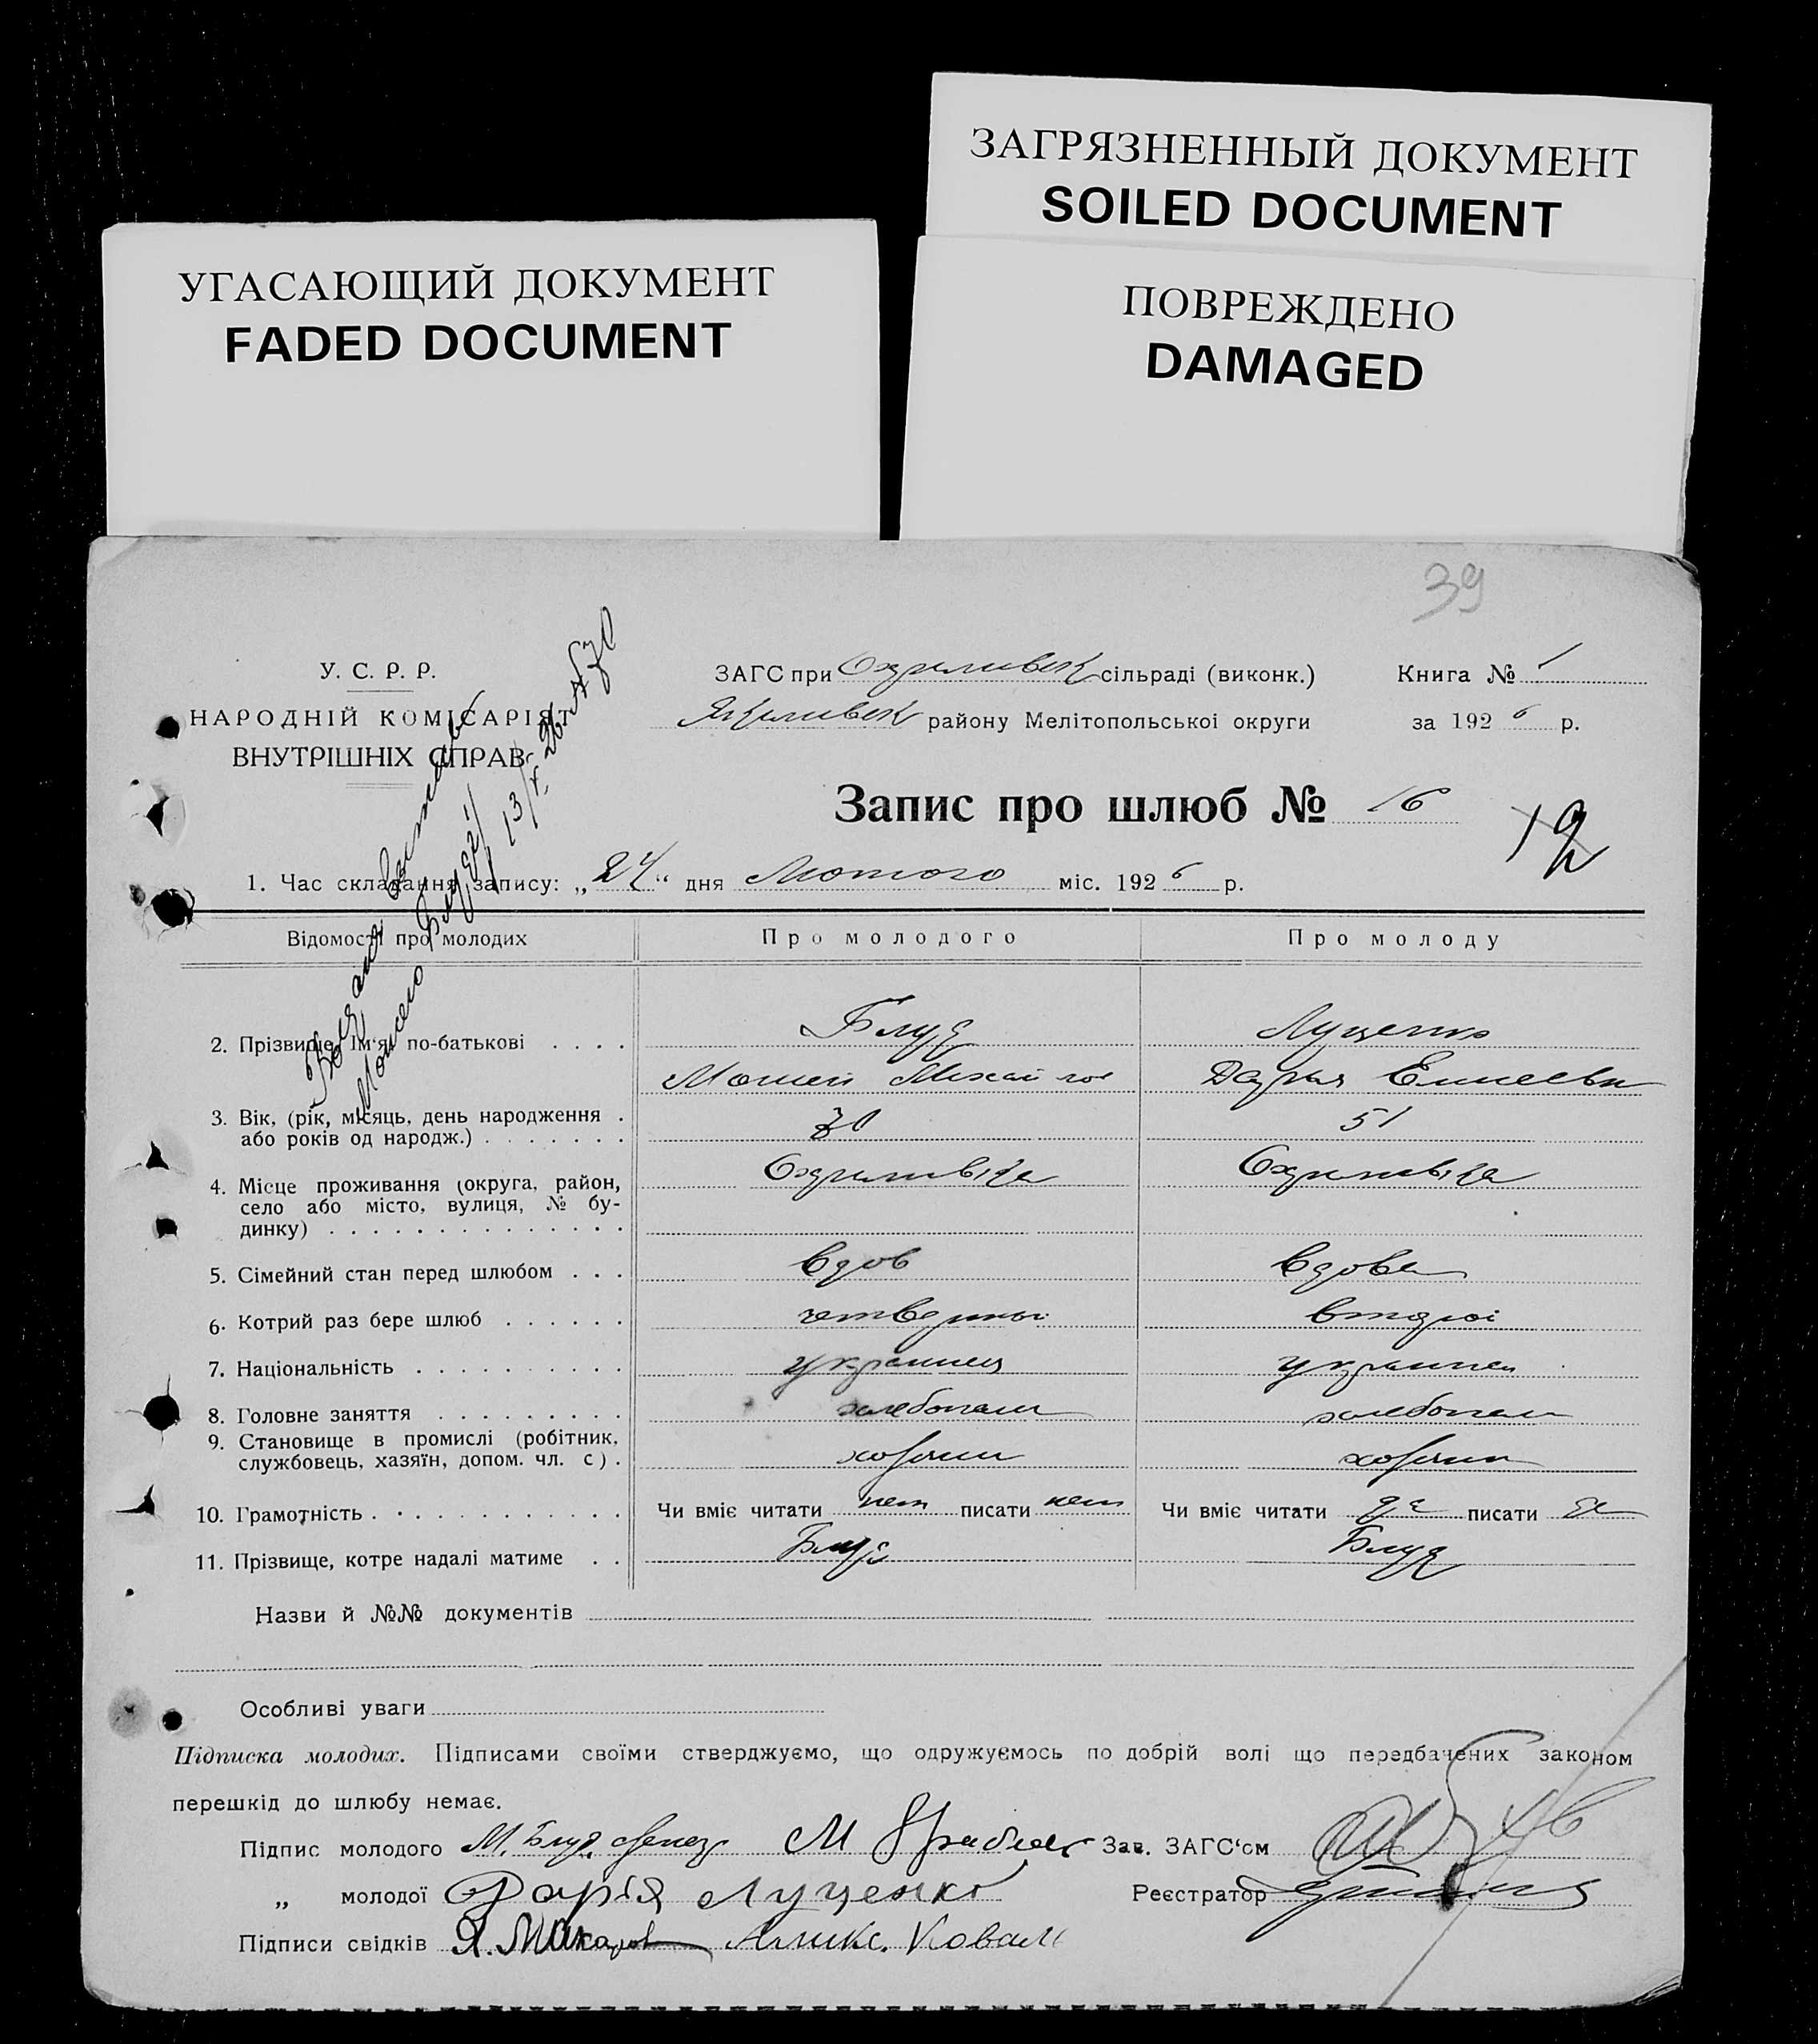 ЗАГРЯЗНЕННЫЙ ДОКУМЕНТ
SOILED DOCUMENT
УГАСАЮЩИЙ ДОКУМЕНТ
FADED DOCUMENT
ПОВРЕЖДЕНО
DAMAGED
39
У. С. Р. Р.
НАРОДНІЙ КОМІСАРІЯТ
ВНУТРІШНІХ СПРАВ
ЗАГС при сільраді (виконк.)
району Мелітопольської округи
Книга № 1
за 1926 р.
Запис про шлюб № 16
12
1. Час складання запису: „24“ дня Лютого міс. 1926 р.
Відомості про молодих Про молодого Про молоду
2. Прізвище, ім'я, по-батькові . . . . Блуд Луценко
Мошей Дарья Елисеевн
3. Вік, (рік, місяць, день народження . 70 51
або років од народж.) . . . . . . .
4. Місце проживання (округа, район, Охримівка Охримівка
село або місто, вулиця, № бу-
динку) . . . . . . . . . . . . . .
5. Сімейний стан перед шлюбом . . . вдов вдова
6. Котрий раз бере шлюб . . . . . . второі
7. Національність . . . . . . . . . . украинец
8. Головне заняття . . . . . . . . .
9. Становище в промислі (робітник,
службовець, хазяїн, допом. чл. с) .
10. Грамотність . . . . . . . . . . . . Чи вміє читати нет писати нет Чи вміє читати да писати да
11. Прізвище, котре надалі матиме . . Блуд Блуд
Назви й №№ документів
Особливі уваги
Підписка молодих. Підписами своїми стверджуємо, що одружуємось по добрій волі що передбачених законом
перешкід до шлюбу немає.
Підпис молодого М. Блуд Зав. ЗАГС'ом
„ молодої Дарія Луценко Реєстратор
Підписи свідків Я. Макаров Коваль